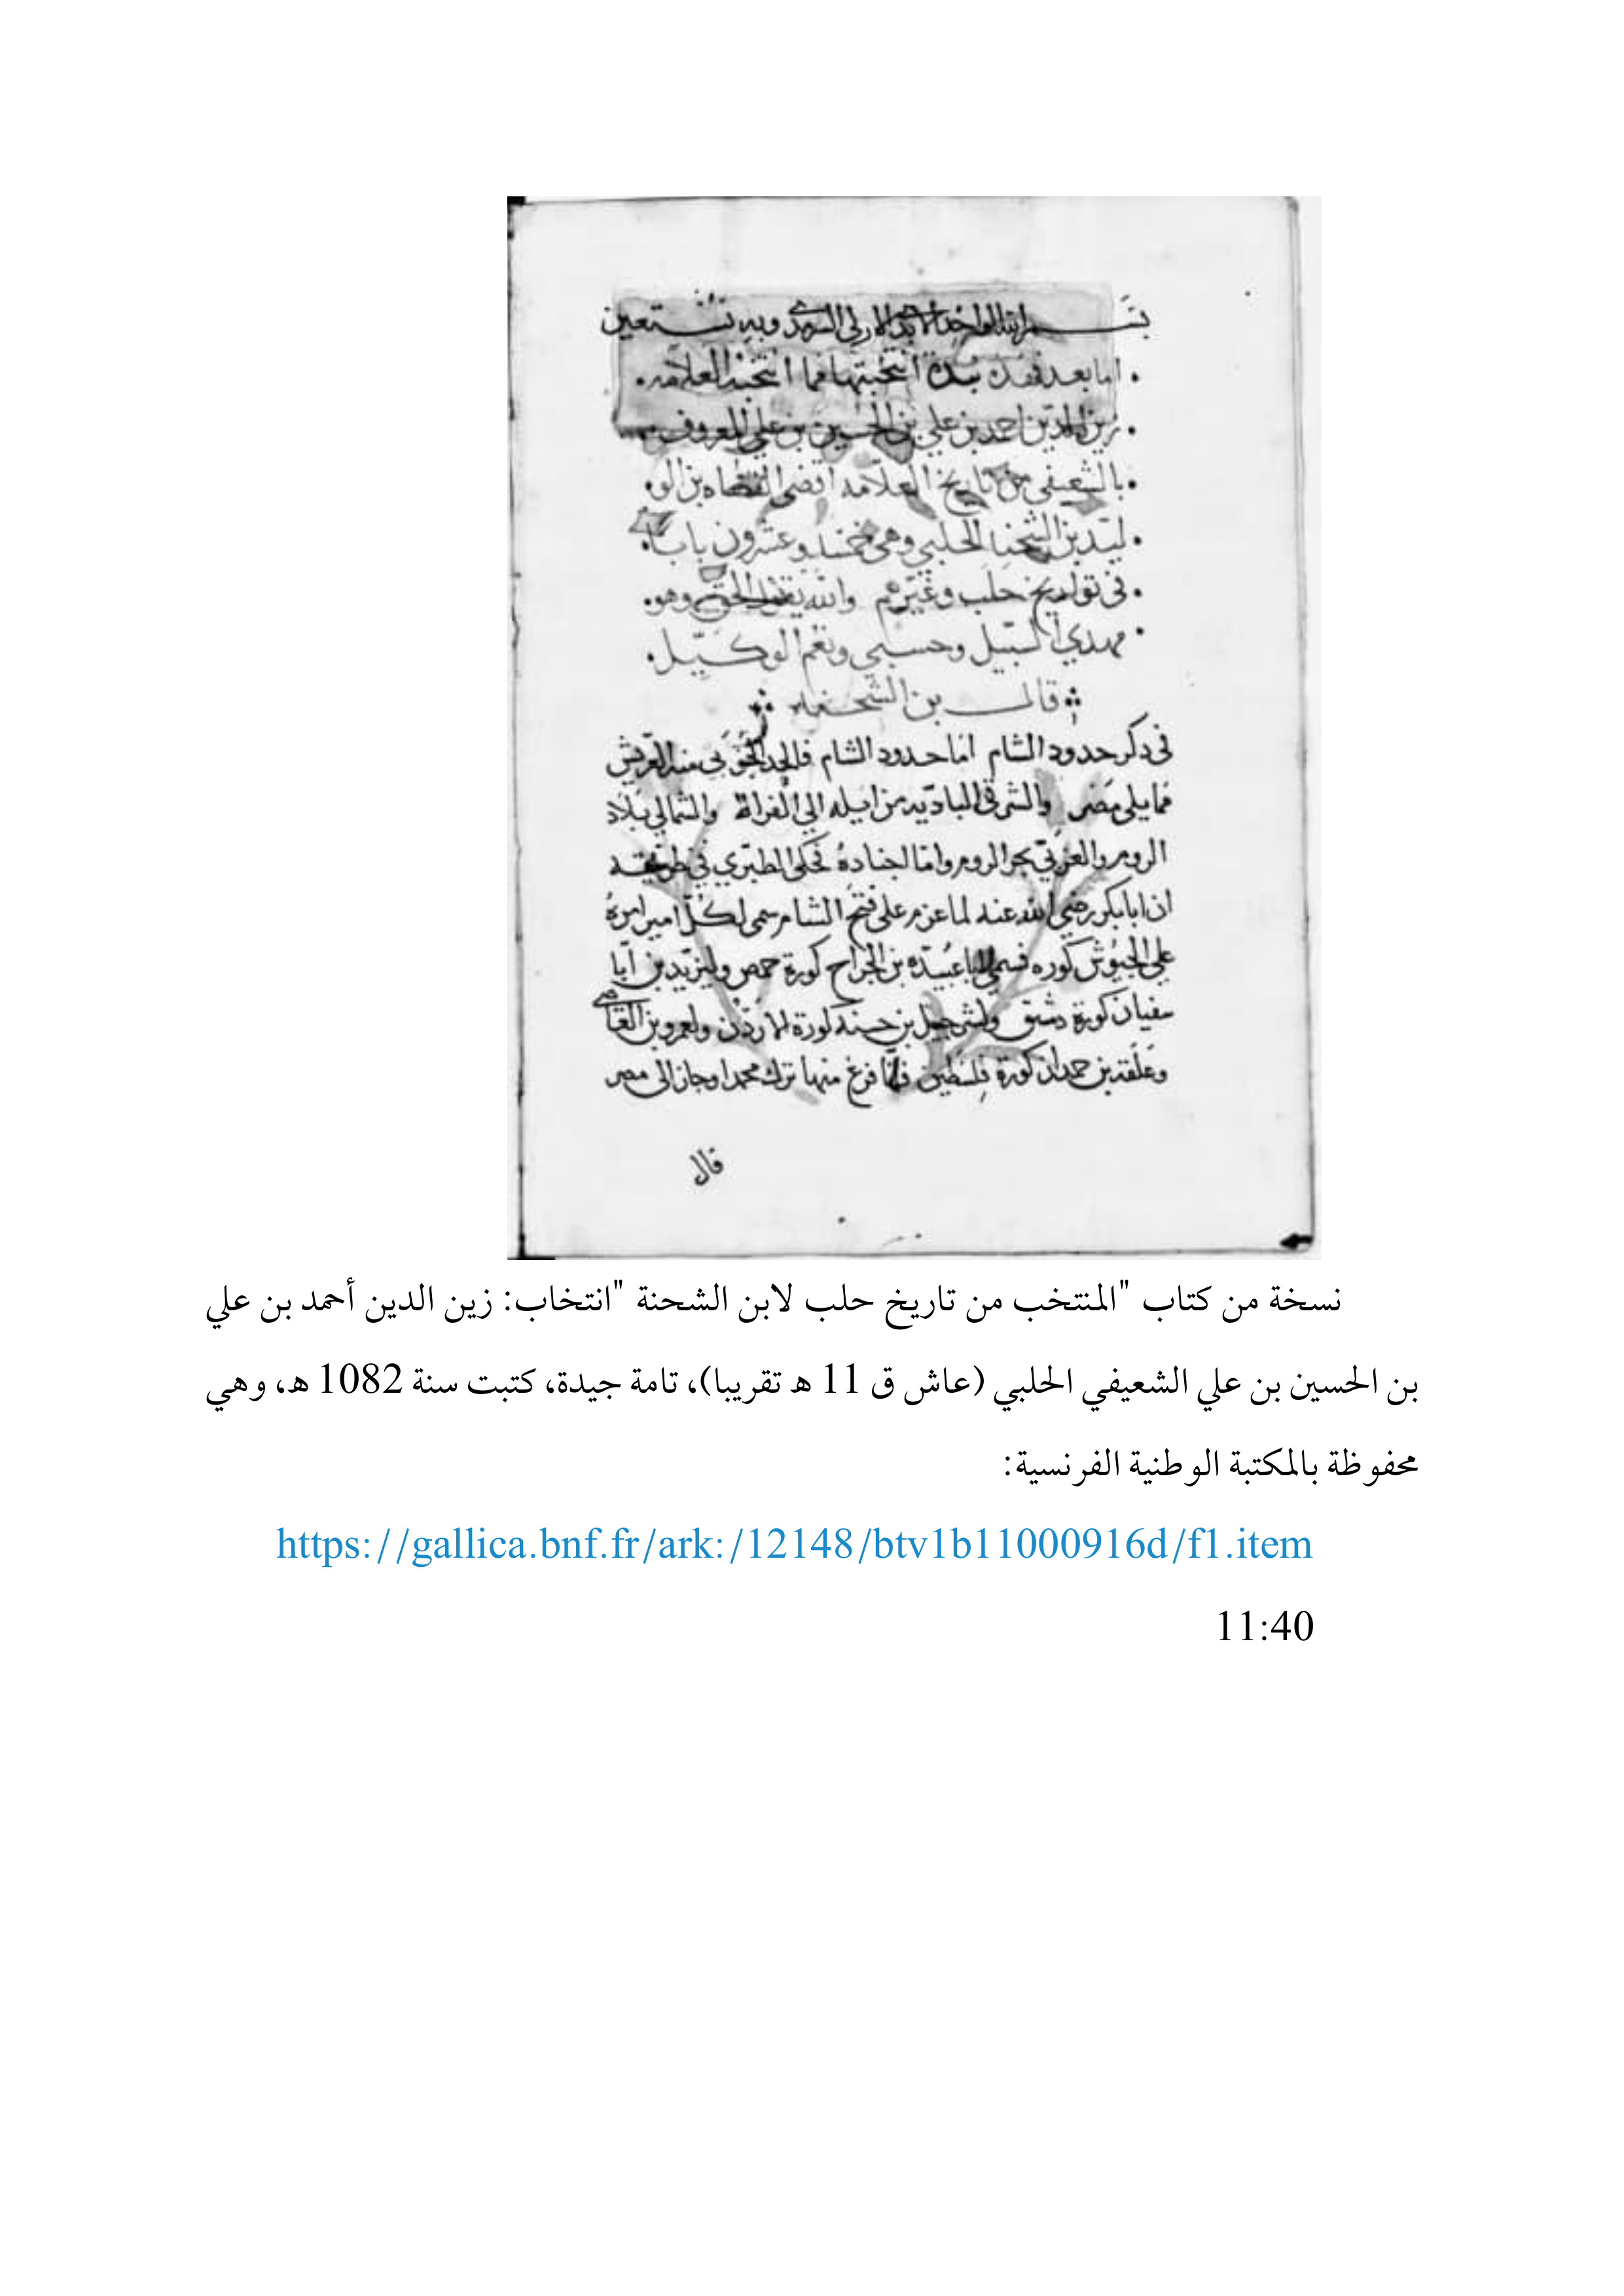 بسم الله الواحد الابدي الازلي السرمدي وبه نستعين
اما بعد فهذه نبذة انتخبتها مما انتخبه العلامه
زين الدين احمد بن علي بن الحسين بن علي المعروف
بالشعيفي من تاريخ العلامه اقضى القضاه بن الو
ليد بن الشحنا الحلبي وهي خمسا وعشرون بابا
في تواريخ حلب وغيرهم والله يقول الحق وهو
مهدي السبيل وحسبي ونعم الوكيل
قال بن الشحنه
في ذكر حدود الشام اما حدود الشام فالحد الجنوبي منه العريش
مما يلي مصر والشرقي الباديه من ايله الي الفراة والشمالي بلاد
الروم والغربي بحر الروم واما اجناده فحكى الطبري في
ان ابا بكر رضي الله عنه لما عزم على فتح الشام سمى لكل امير امره
علي الجيوش كوره فسمي لابا عبيده بن الجراح كورة حمص وليزيد بن ابا
سفيان كورة دمشق ولشرحبيل بن حسنه كورة الاردن ولعمرو بن العاصي
وعلقمه بن كورة فلسطين فلما فرغ منها ترك محمدا وجاز الى مصر
قال
نسخة من كتاب "المنتخب من تاريخ حلب لابن الشحنة "انتخاب: زين الدين أحمد بن علي
بن الحسين بن علي الشعيفي الحلبي (عاش ق 11 ه تقريبا)، تامة جيدة، كتبت سنة 1082 ه، وهي
محفوظة بالمكتبة الوطنية الفرنسية:
https://gallica.bnf.fr/ark:/12148/btv1b11000916d/f1.item
11:40